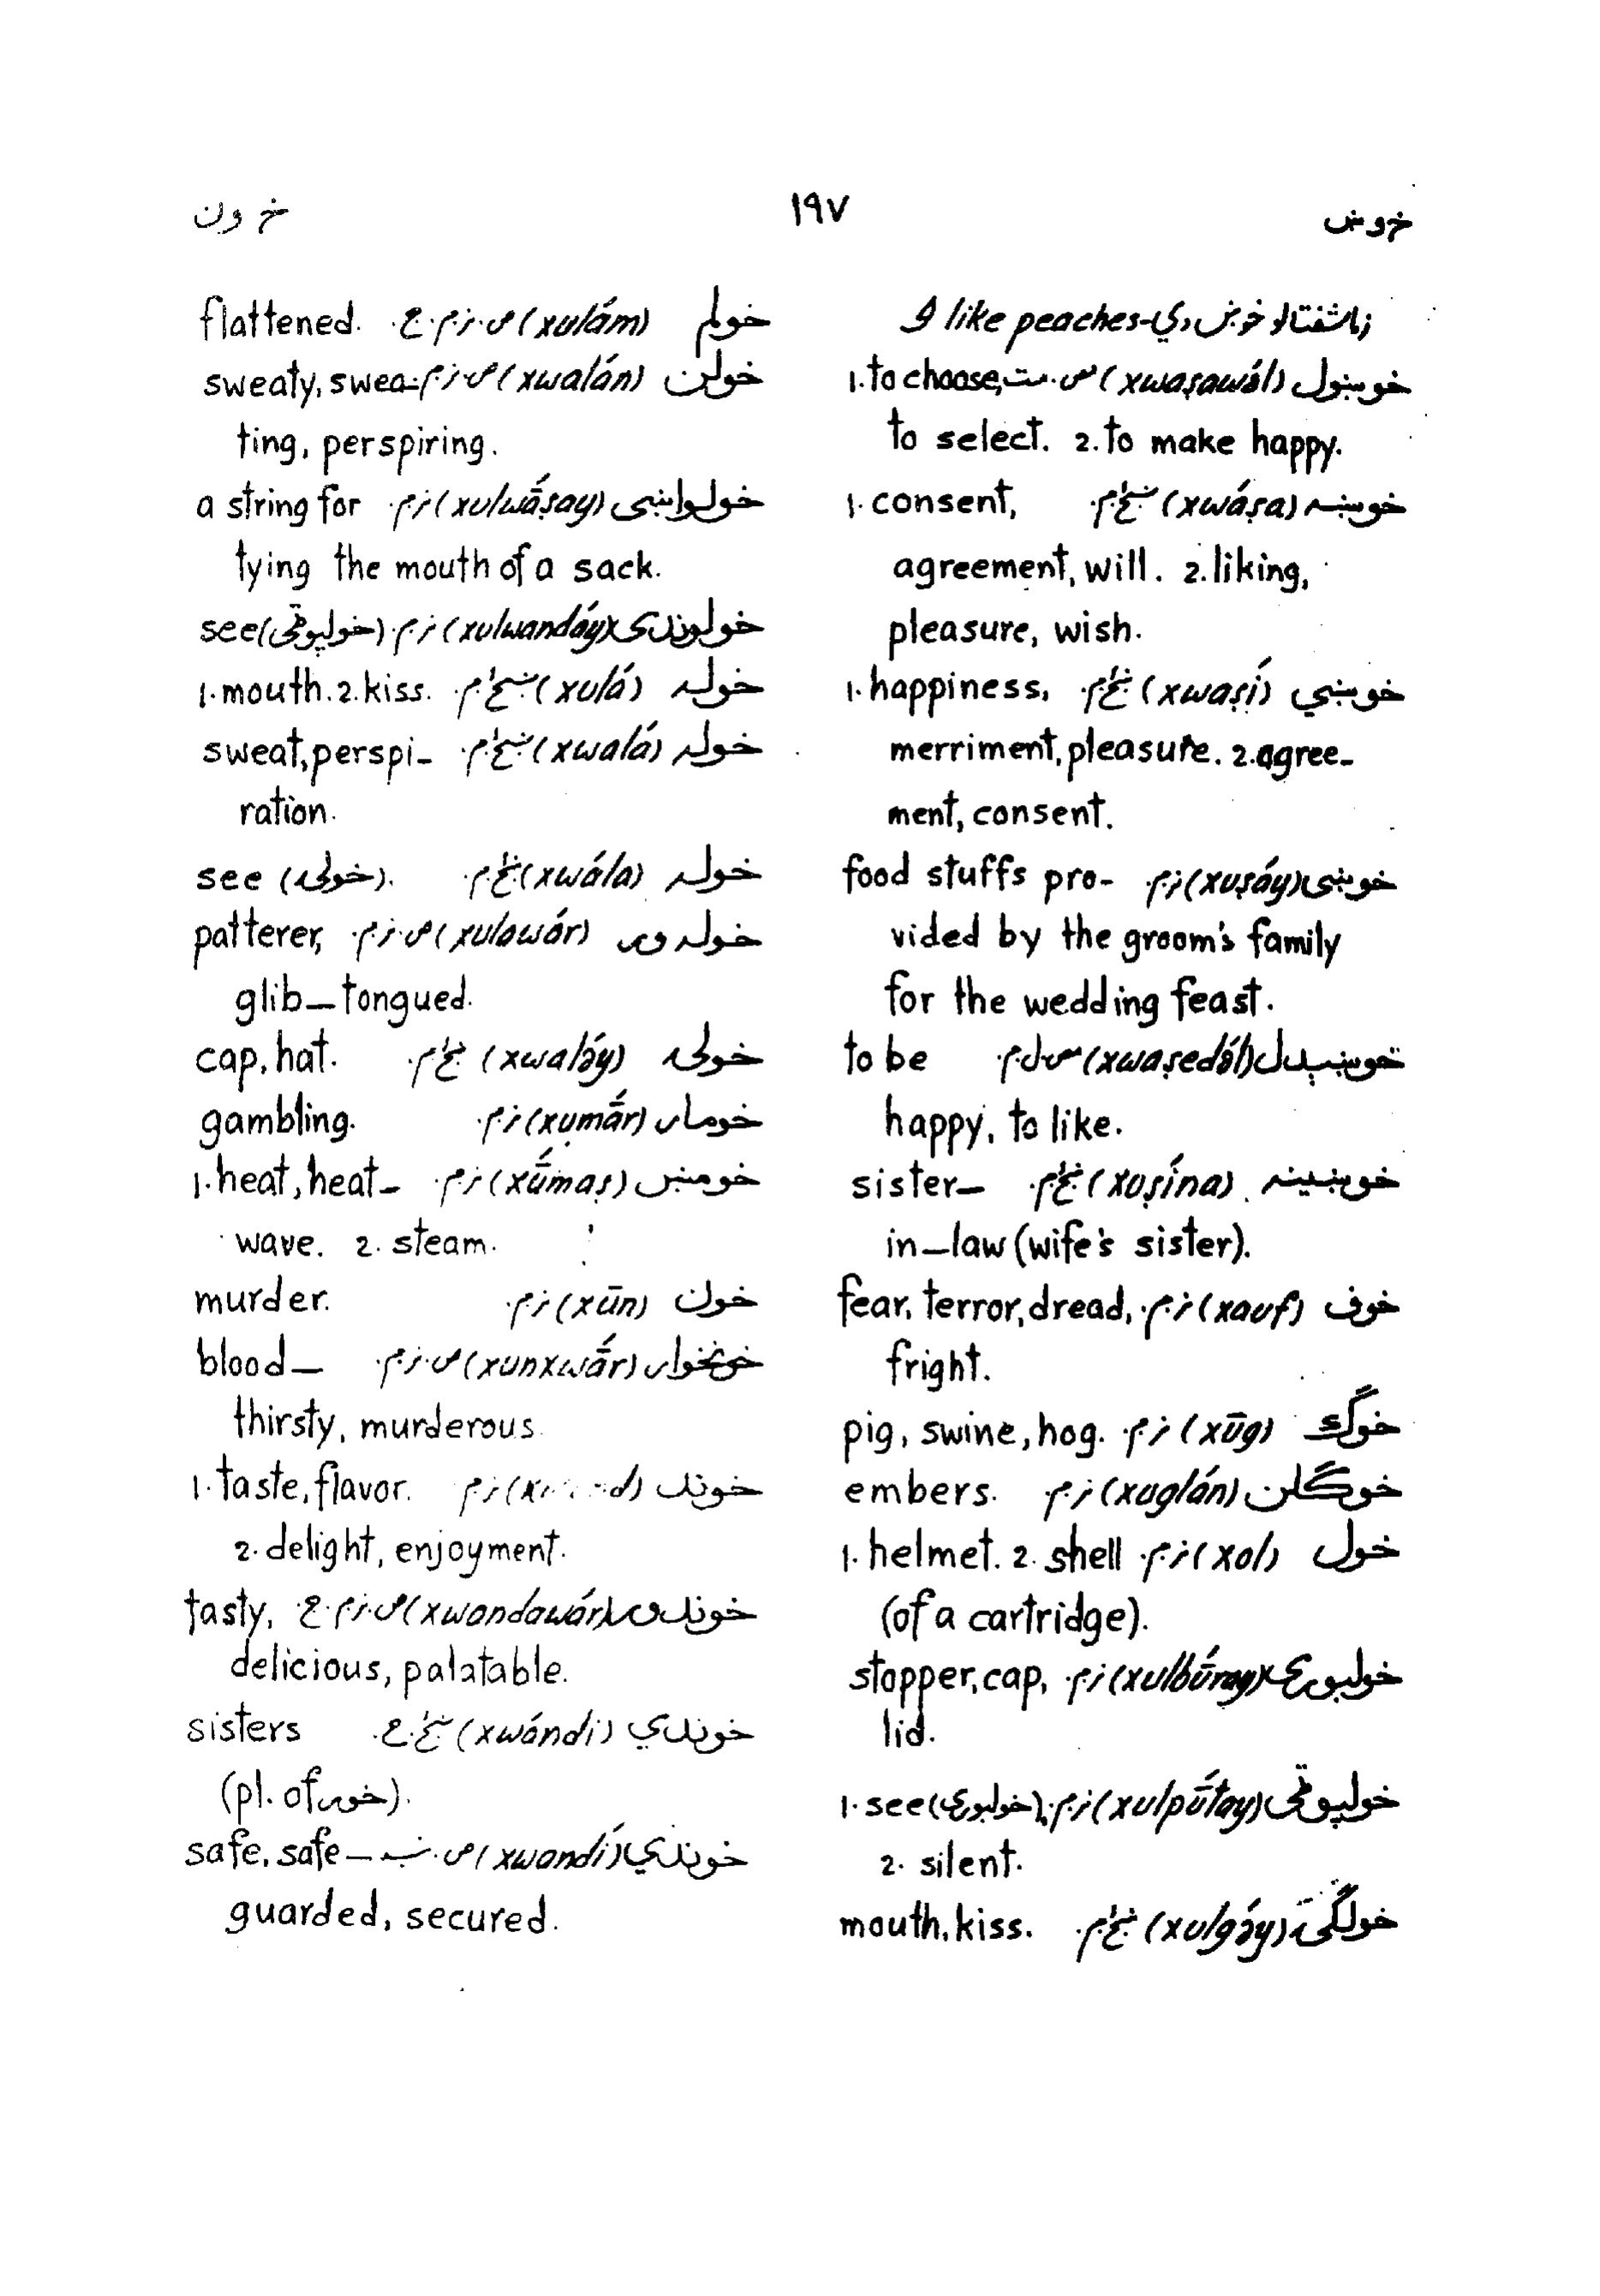 خوښ
۱۹۷
خ ون
زما شفتالو خوښ دي- I like peaches
خوښول (xwaṣawə́l) ص.مت. 1. to choose,
to select. 2. to make happy.
خوښه (xwáṣa) ښځ.م. 1. consent,
agreement, will. 2. liking,
pleasure, wish.
خوښي (xwaṣí) ښځ.م. 1. happiness,
merriment, pleasure. 2. agree-
ment, consent.
خوښی (xuṣáy) نر.م. food stuffs pro-
vided by the groom's family
for the wedding feast.
خوښېدل (xwaṣedə́l) to be
happy, to like.
خوښينه (xuṣína) ښځ.م. sister-
in-law (wife's sister).
خوف (xauf) نر.م. fear, terror, dread,
fright.
خوګ (xūg) نر.م. pig, swine, hog.
خوګلن (xuglán) نر.م. embers.
خول (xol) نر.م. 1. helmet. 2. shell
(of a cartridge).
خولبوری (xulbū́ray) نر.م. stopper, cap,
lid.
خولپوټی (xulpū́ṭay) نر.م. 1. see (خولبوری).
2. silent.
خولګۍ (xulgə́y) ښځ.م. mouth, kiss.
خولم (xulám) ص.نر.م.ج. flattened.
خولن (xwalán) ص.نر.م. sweaty, swea-
ting, perspiring.
خولواښی (xulwā́ṣay) نر.م. a string for
tying the mouth of a sack.
خولوندی (xulwandáy) نر.م. see (خولپوټی)
خوله (xulá) ښځ.م. 1. mouth. 2. kiss.
خوله (xwalá) ښځ.م. sweat, perspi-
ration.
خوله (xwála) ښځ.م. see (خولۍ).
خوله ور (xulawár) ص.نر.م. patterer,
glib-tongued.
خولۍ (xwaləy) ښځ.م. cap, hat.
خومار (xumā́r) نر.م. gambling.
خومښ (xū́maṣ) نر.م. 1. heat, heat-
wave. 2. steam.
خون (xūn) نر.م. murder.
خونخوار (xunxwā́r) ص.نر.م. blood-
thirsty, murderous
خوند نر.م. 1. taste, flavor.
2. delight, enjoyment.
خوندور (xwandawár) ص.نر.م.ج. tasty,
delicious, palatable.
خوندي (xwándi) ښځ.ج. sisters
(pl. of خور).
خوندي (xwandí) ص.ب. safe, safe-
guarded, secured.